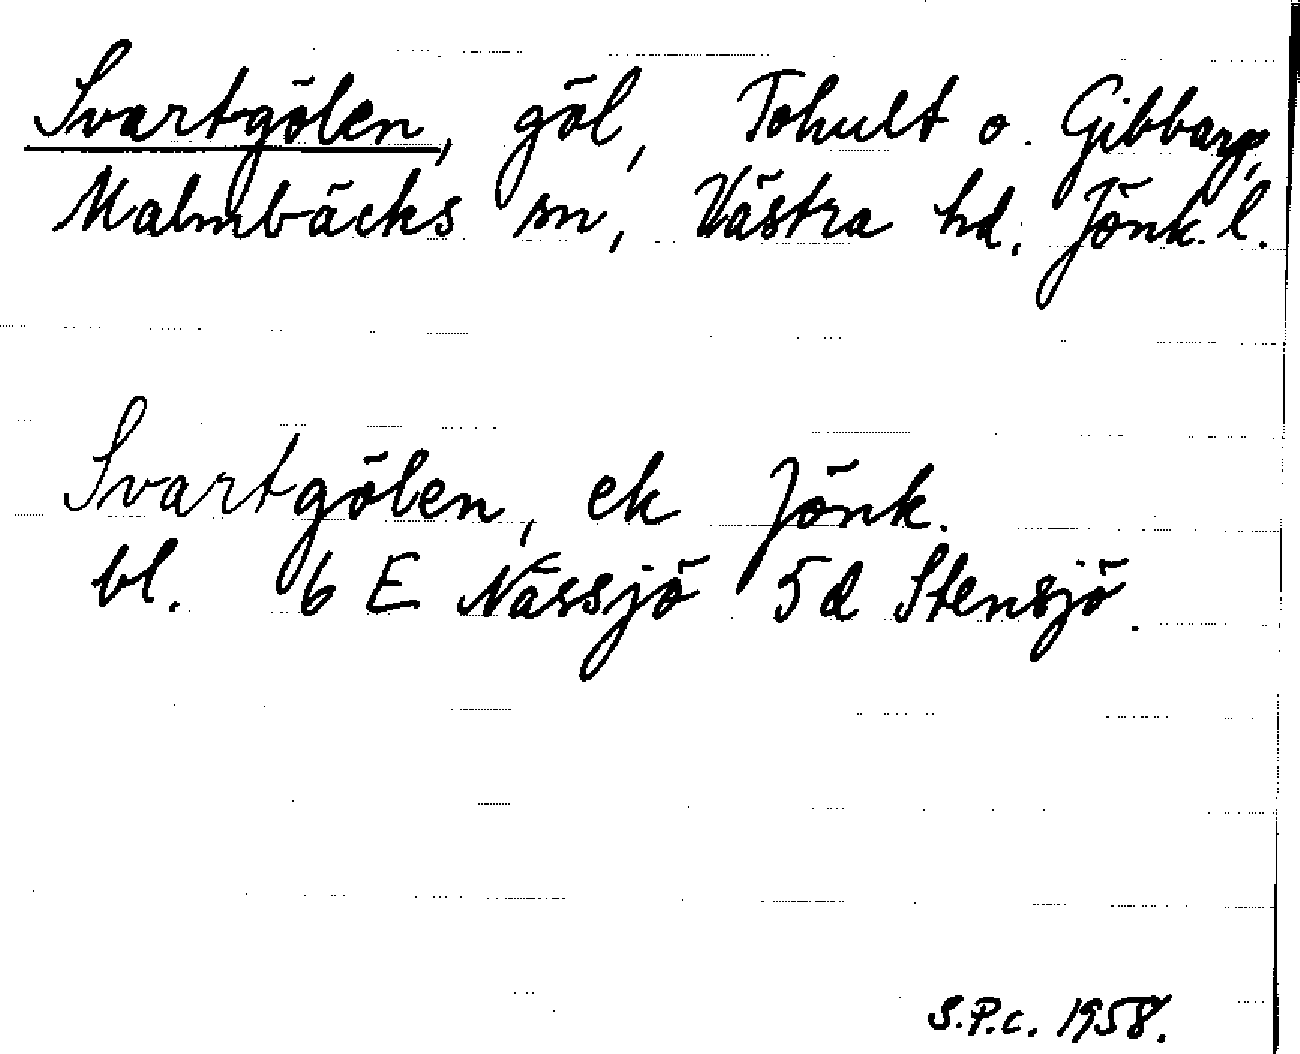 Svartgölen, göl, Tohult o. Gibbarp,
Malmbäcks sn, Västra hd. Jönk. l.
Svartgölen, ek Jönk.
bl. 6 E Nässjö 5d Stensjö.
S.P.c. 1958.